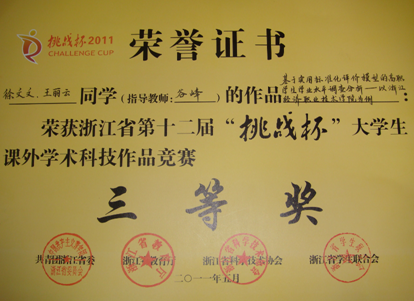 挑战杯 2011
CHALLENGE CUP
荣誉证书
徐文文、王丽云 同学(指导教师: 谷峰)的作品 基于实用标准化评价模型的高职
学生学业水平调查分析——以浙江
经济职业技术学院为例 :
荣获浙江省第十二届“挑战杯”大学生
课外学术科技作品竞赛
三等奖
共青团浙江省委 浙江省教育厅 浙江省科学技术协会 浙江省学生联合会
二〇一一年五月